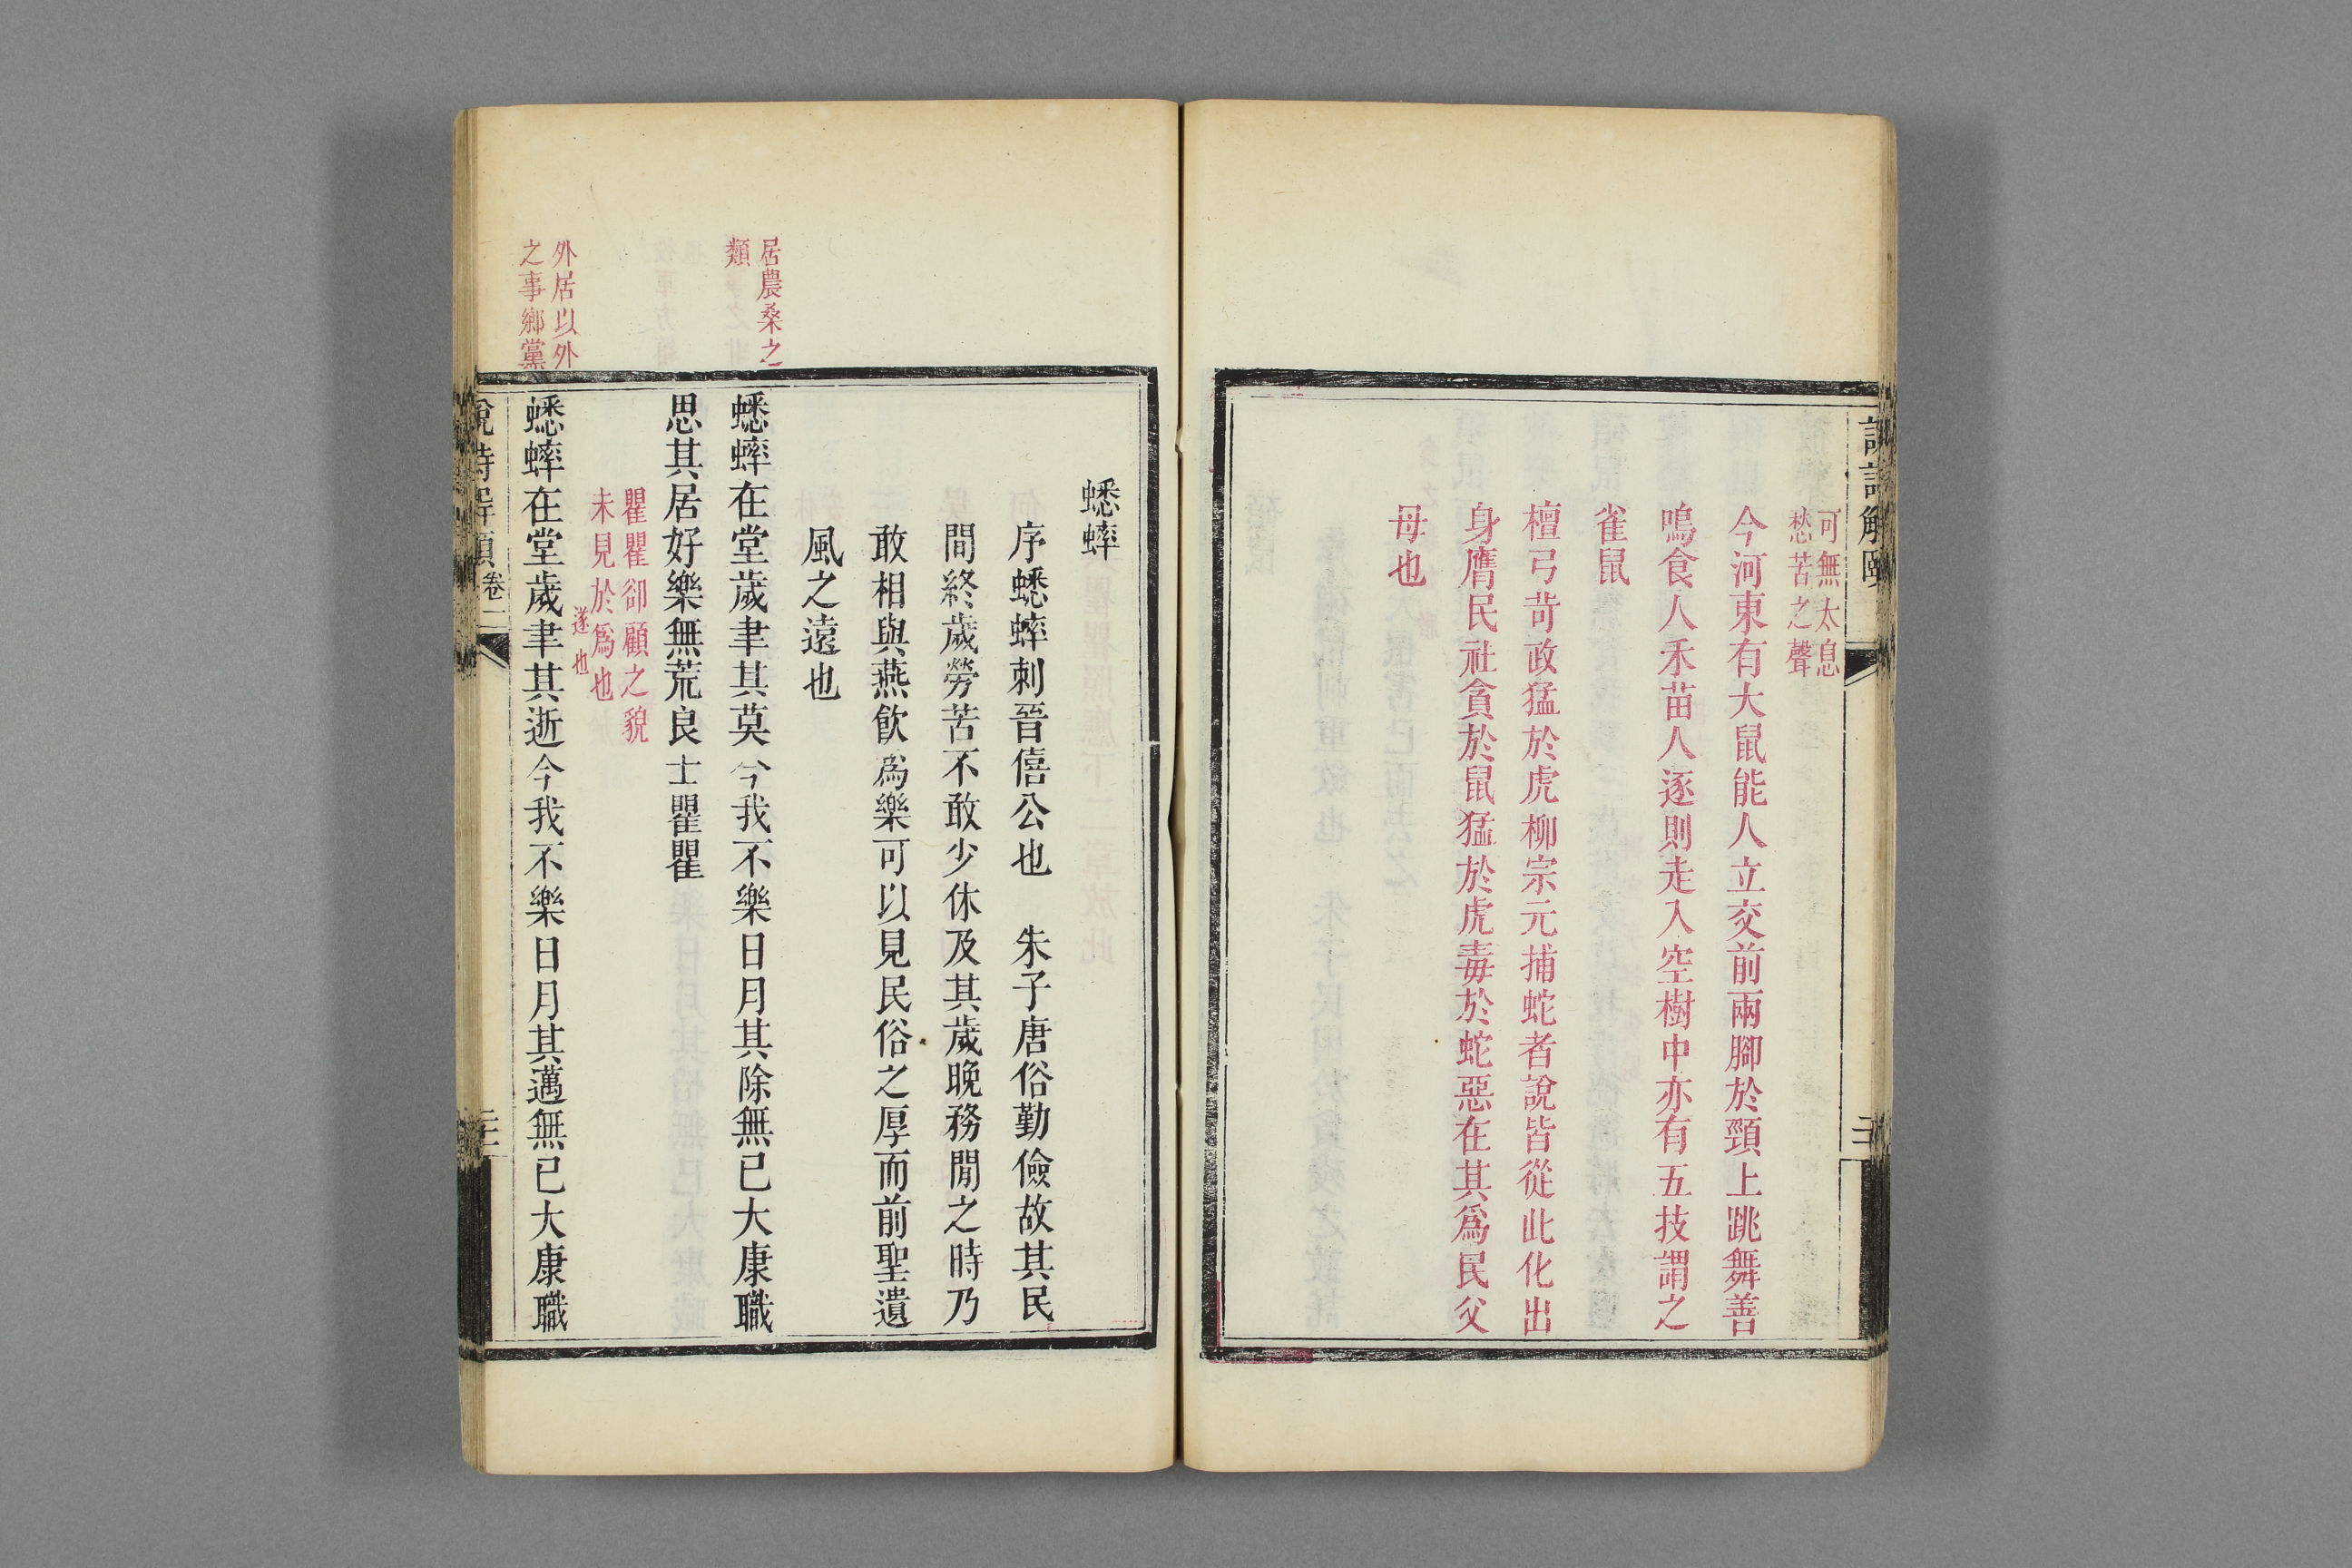 說詩解頤
可無太息
愁苦之聲
今河東有大鼠能人立交前兩腳於頸上跳舞善
鳴食人禾苗人逐則走入空樹中亦有五技謂之
雀鼠
檀弓苛政猛於虎柳宗元捕蛇者說皆從此化出
身膺民社貪於鼠猛於虎毒於蛇惡在其爲民父
母也
蟋蟀
序蟋蟀刺晉僖公也　朱子唐俗勤儉故其民
間終歲勞苦不敢少休及其歲晚務閒之時乃
敢相與燕飲爲樂可以見民俗之厚而前聖遺
風之遠也
居農桑之
類
蟋蟀在堂歲聿其莫今我不樂日月其除無已大康職
思其居好樂無荒良士瞿瞿
瞿瞿卻顧之貌
未見於爲也
遂也
外居以外
之事鄉黨
蟋蟀在堂歲聿其逝今我不樂日月其邁無已大康職
說詩解頤
卷二